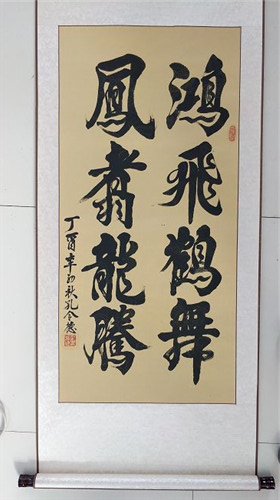 鴻飛鶴舞
鳳翥龍騰
丁酉年初秋孔令德